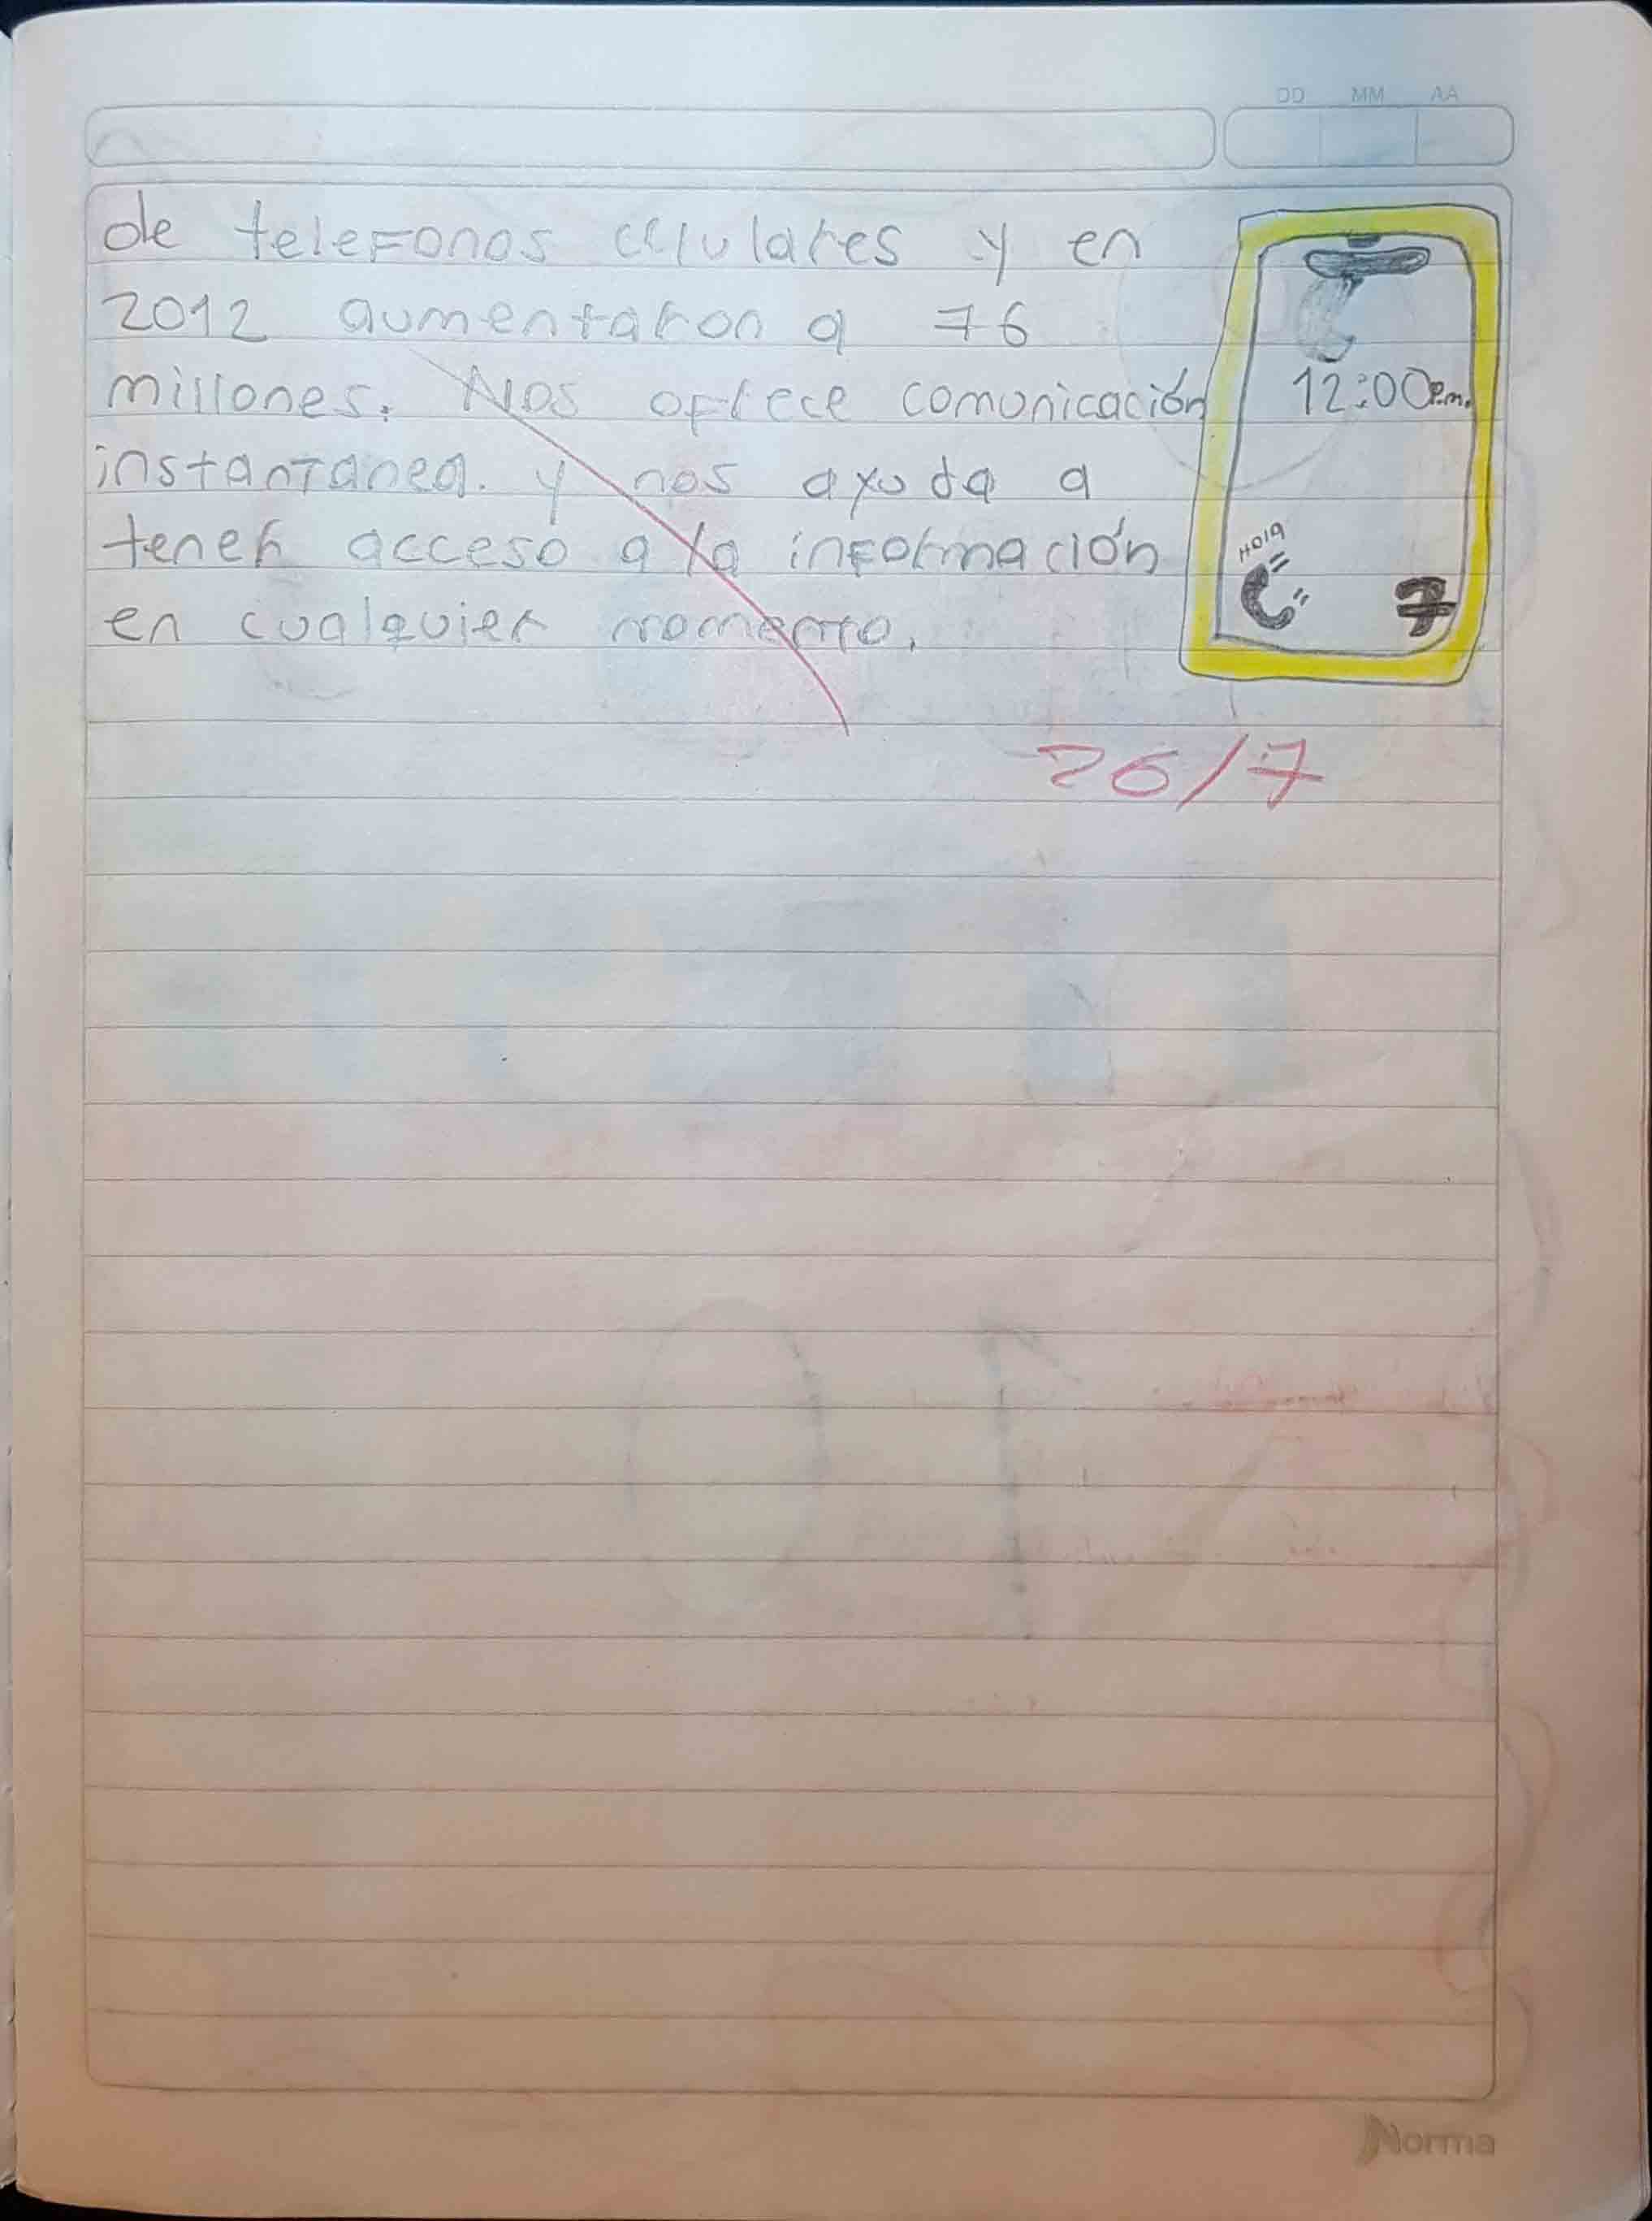 DD MM AA
de teleFonos celulares y en
2012 aumentaron a 76
millones. Nos ofrece comunicación
instantanea. y nos ayuda a
tener acceso a la información
en cualquier momento.
12:00 P.m.
Hola
26/7
Norma